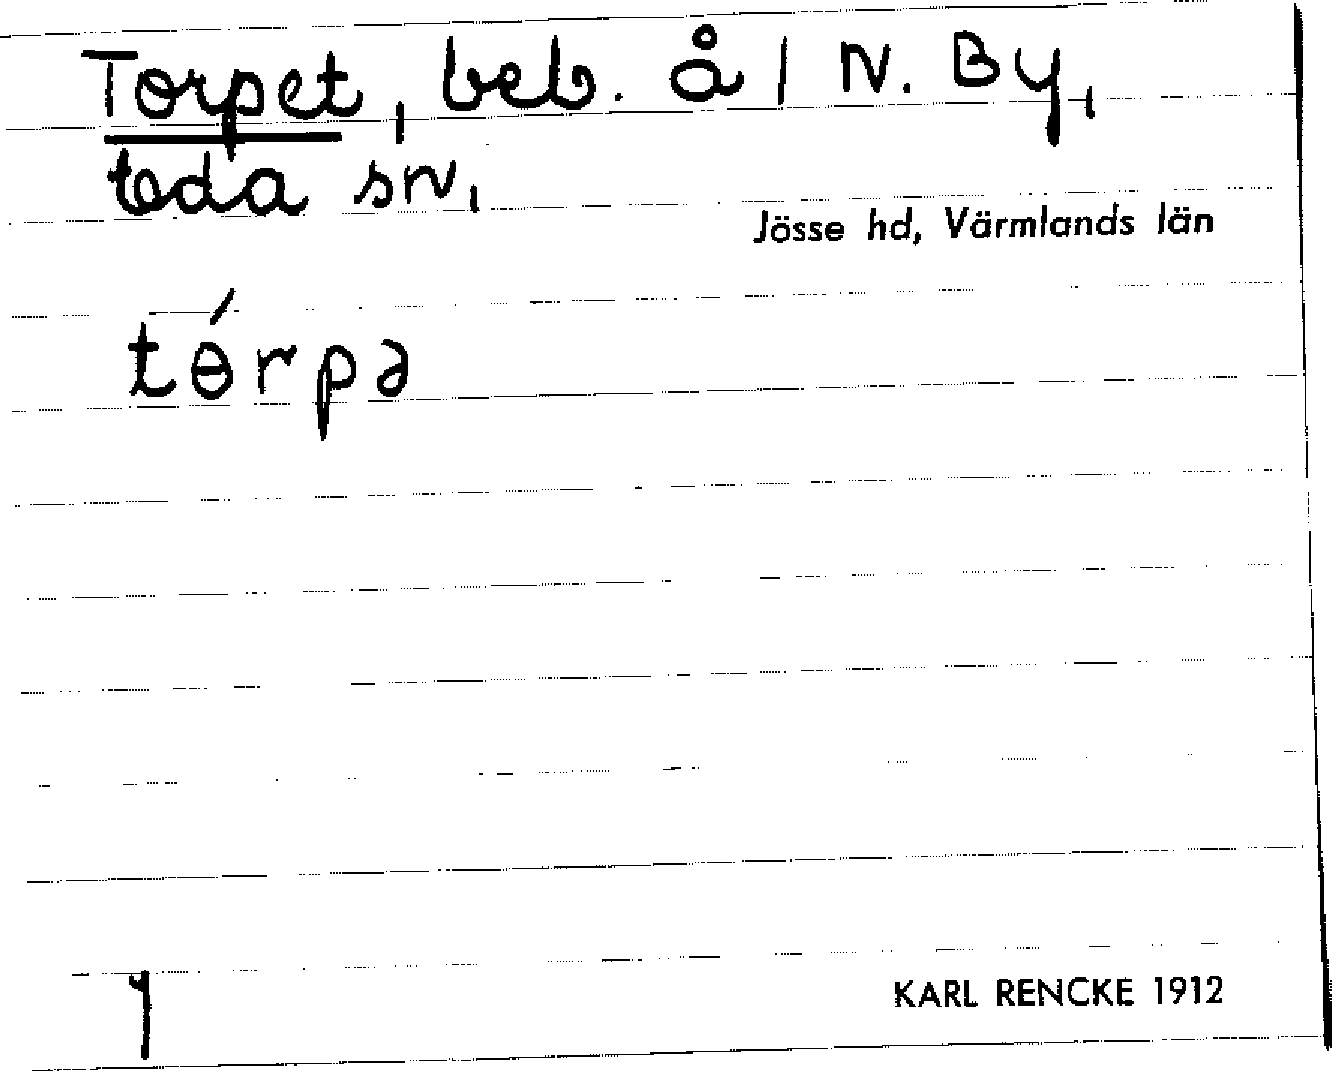 Torpet, beb. å 1 N. By,
Eda sn,
Jösse hd, Värmlands län
tǿrpə
1
KARL RENCKE 1912